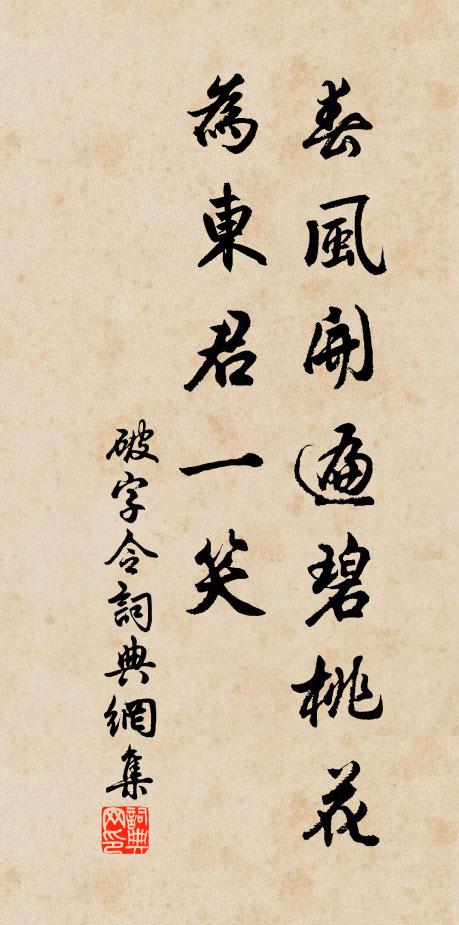 春風開遍碧桃花
為東君一笑
破字令詞典網集
詞典
网印